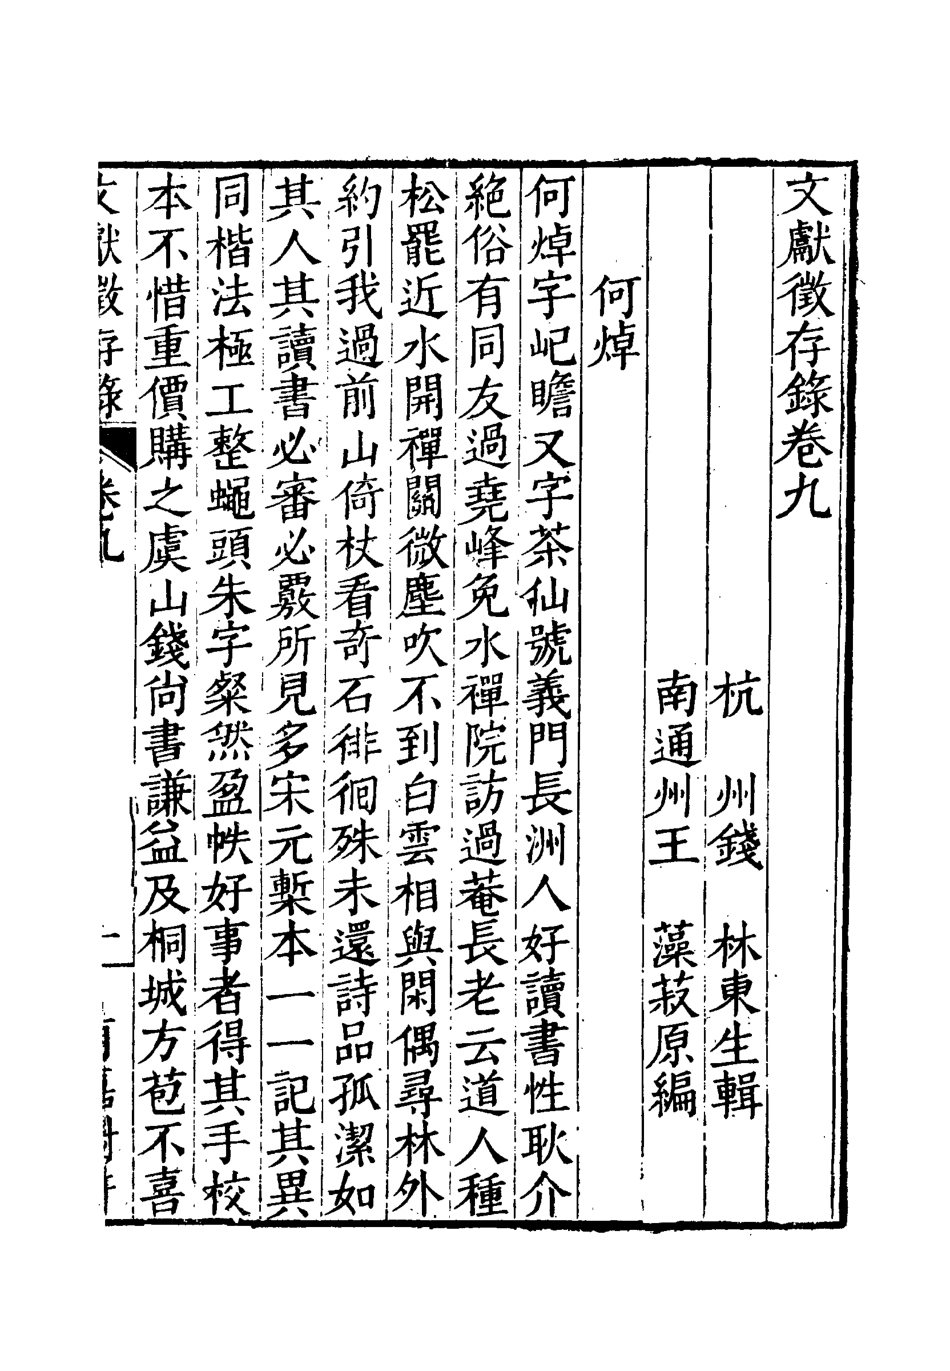 文獻徵存錄卷九
杭　州錢　林東生輯
南通州王　藻菽原編
何焯
何焯字屺瞻又字茶仙號義門長洲人好讀書性耿介
絕俗有同友過堯峰免水禪院訪過菴長老云道人種
松罷近水開禪關微塵吹不到白雲相與閑偶尋林外
約引我過前山倚杖看奇石徘徊殊未還詩品孤潔如
其人其讀書必審必覈所見多宋元槧本一一記其異
同楷法極工整蠅頭朱字粲然盈帙好事者得其手校
本不惜重價購之虞山錢尚書謙益及桐城方苞不喜
文獻徵存錄　卷九　一